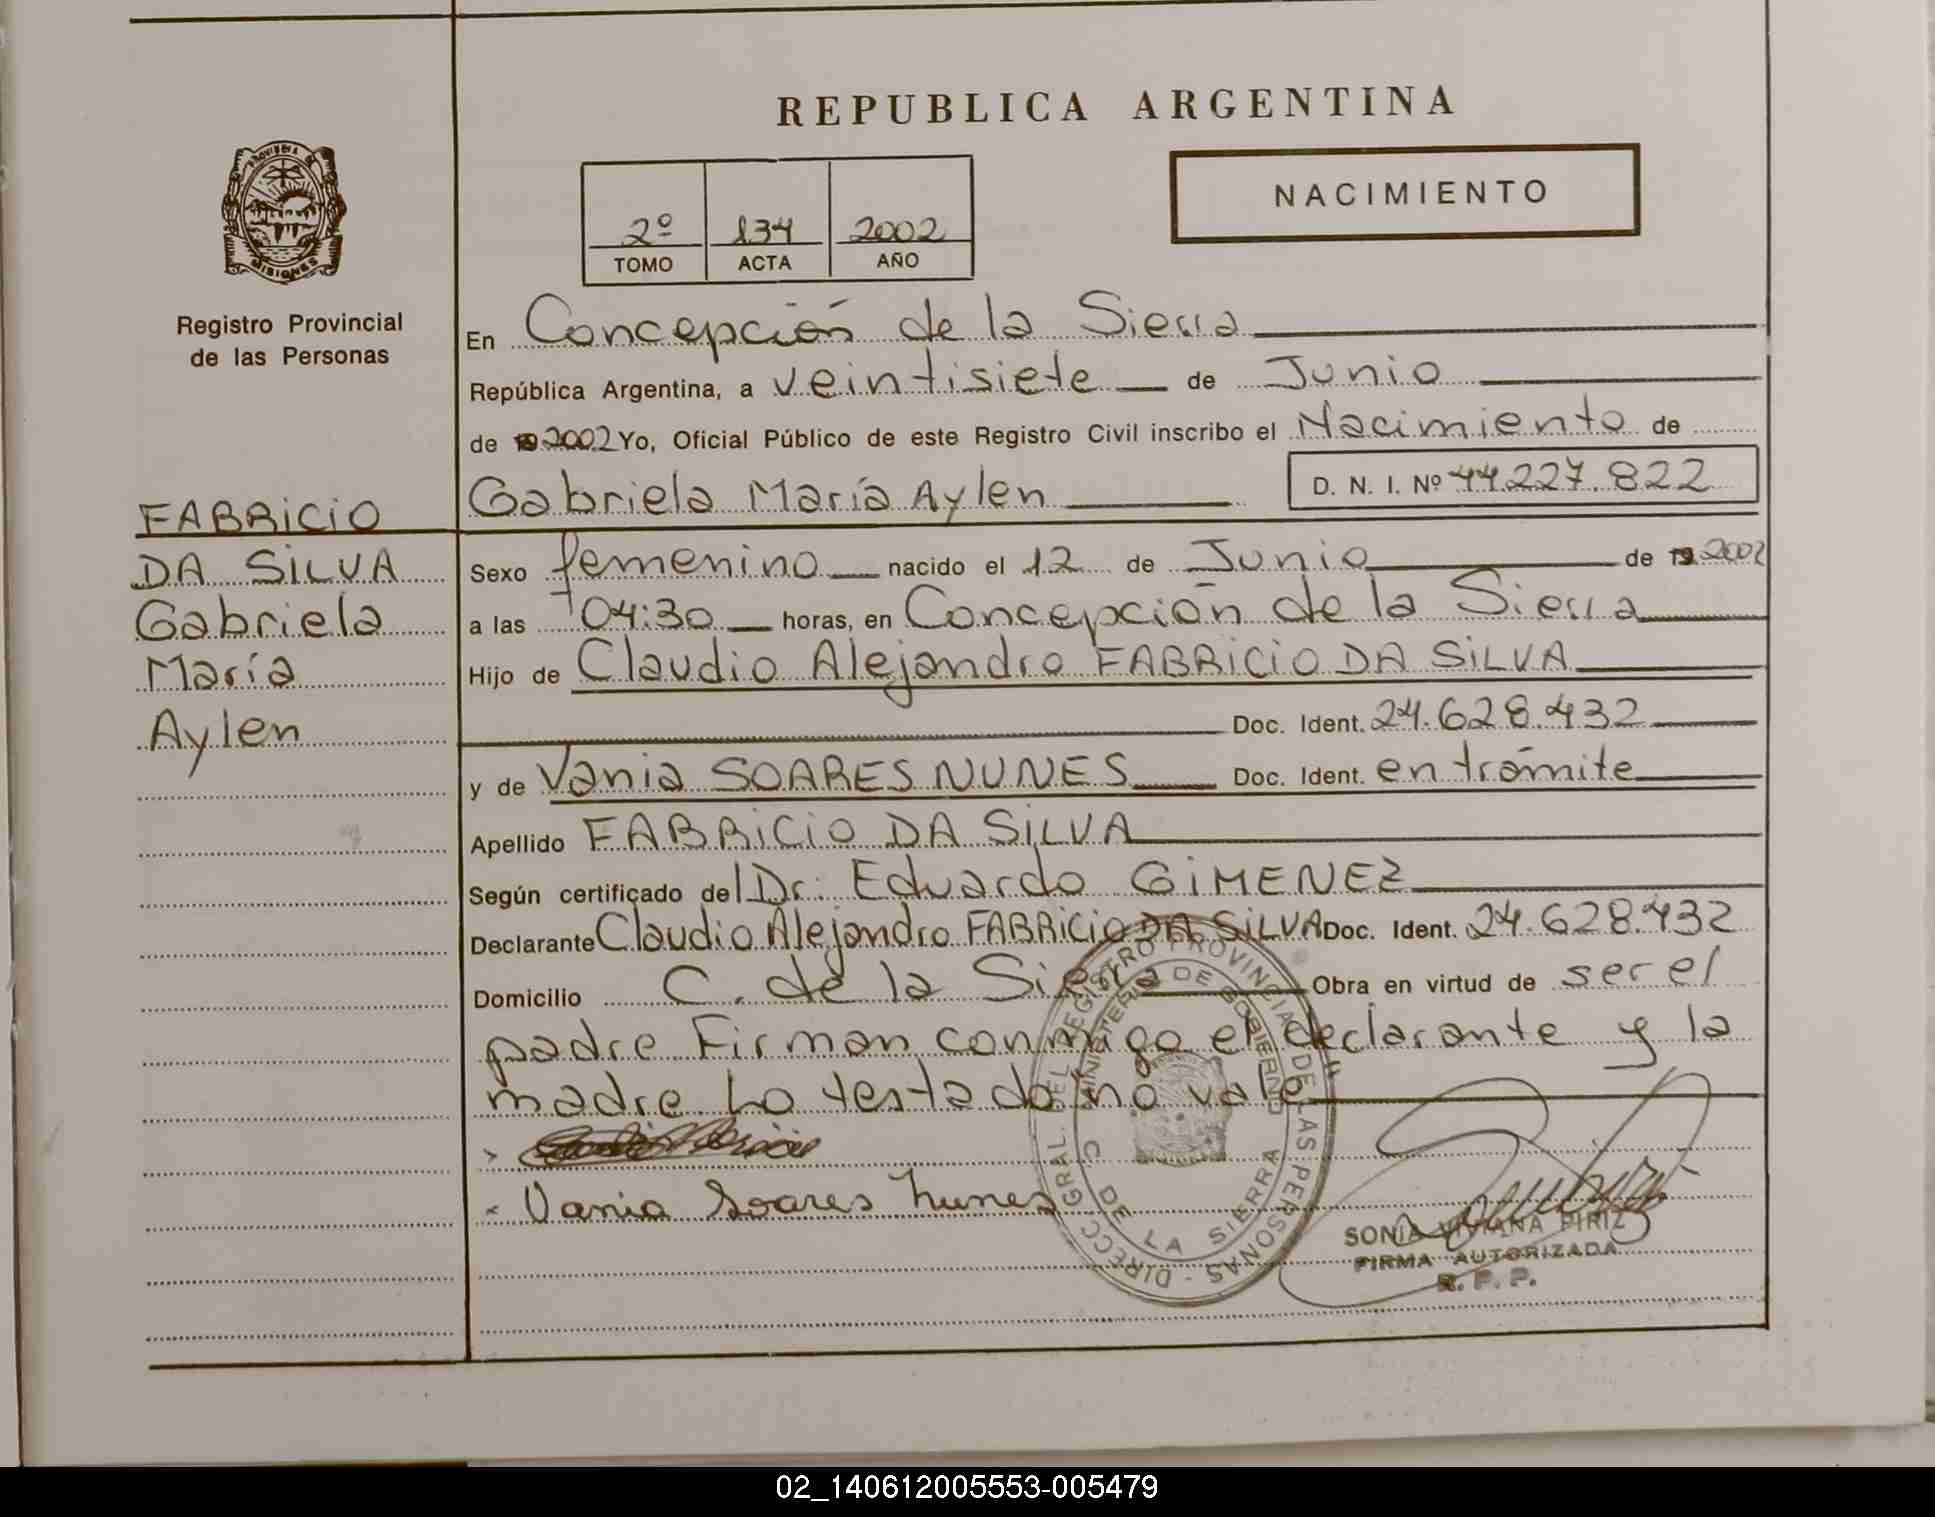 REPUBLICA ARGENTINA
NACIMIENTO
2º 134 2002
TOMO ACTA AÑO
PROVINCIA DE
MISIONES
Registro Provincial
de las Personas
En Concepción de la Sierra
República Argentina, a veintisiete de Junio
de 19 2002 Yo, Oficial Público de este Registro Civil inscribo el Nacimiento de
Gabriela María Aylen D. N. I. Nº 44.227.822
FABRICIO
DA SILVA
Gabriela
María
Aylen
Sexo femenino nacido el 12 de Junio de 19 2002
a las 04:30 horas, en Concepción de la Sierra
Hijo de Claudio Alejandro FABRICIO DA SILVA
Doc. Ident. 24.628.432
y de Vania SOARES NUNES Doc. Ident. en trámite
Apellido FABRICIO DA SILVA
Según certificado del Dr. Eduardo GIMENEZ
Declarante Claudio Alejandro FABRICIO DA SILVA Doc. Ident. 24.628.432
Domicilio C. de la Sierra Obra en virtud de ser el
padre Firman conmigo el declarante y la
madre Lo testado no vale
Vania Soares Nunes
DIRECC. GRAL. DEL REGISTRO PROVINCIAL DE LAS PERSONAS
MINISTERIO DE GOBIERNO
C DE LA SIERRA
SONIA VIVIANA PIRIZ
FIRMA AUTORIZADA
R. P. P.
02_140612005553-005479